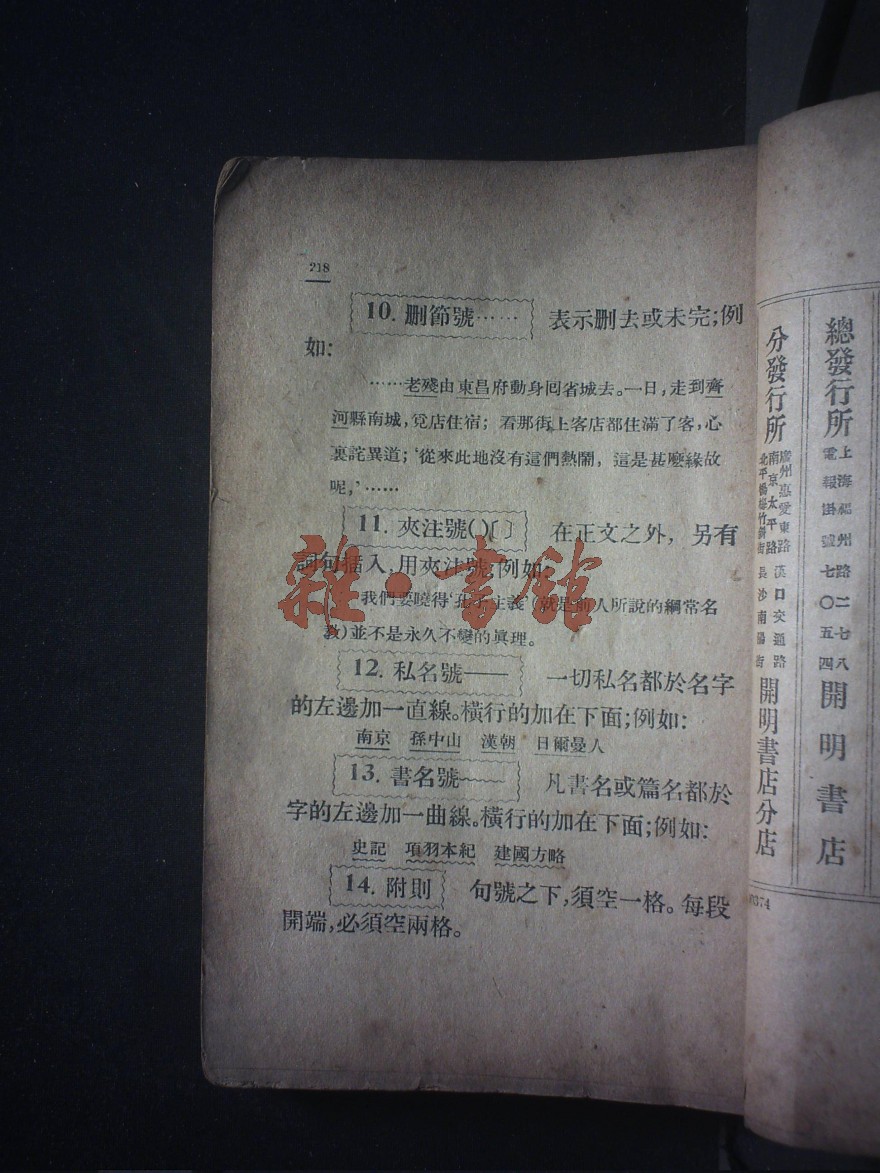 218
10. 删節號…… 表示删去或未完；例
如：
……老殘由東昌府動身回省城去。一日，走到齊
河縣南城，覓店住宿；看那街上客店都住滿了客，心
裏詫異道；‘從來此地沒有這們熱鬧，這是甚麽緣故
呢，’……
11. 夾注號（）〔〕 在正文之外，另有
詞句插入，用夾注號；例如：
我們要曉得‘孔子主義’（就是前人所說的綱常名
教）並不是永久不變的眞理。
12. 私名號—— 一切私名都於名字
的左邊加一直線。橫行的加在下面；例如：
南京 孫中山 漢朝 日爾曼人
13. 書名號﹏﹏ 凡書名或篇名都於
字的左邊加一曲線。橫行的加在下面；例如：
史記 項羽本紀 建國方略
14. 附則 句號之下，須空一格。每段
開端，必須空兩格。
雜·書館
總發行所 上海福州路二七八 電報掛號七〇五四 開明書店
分發行所 廣州惠愛東路 南京太平路 北平楊梅竹斜街 漢口交通路 長沙南陽街 開明書店分店
0374